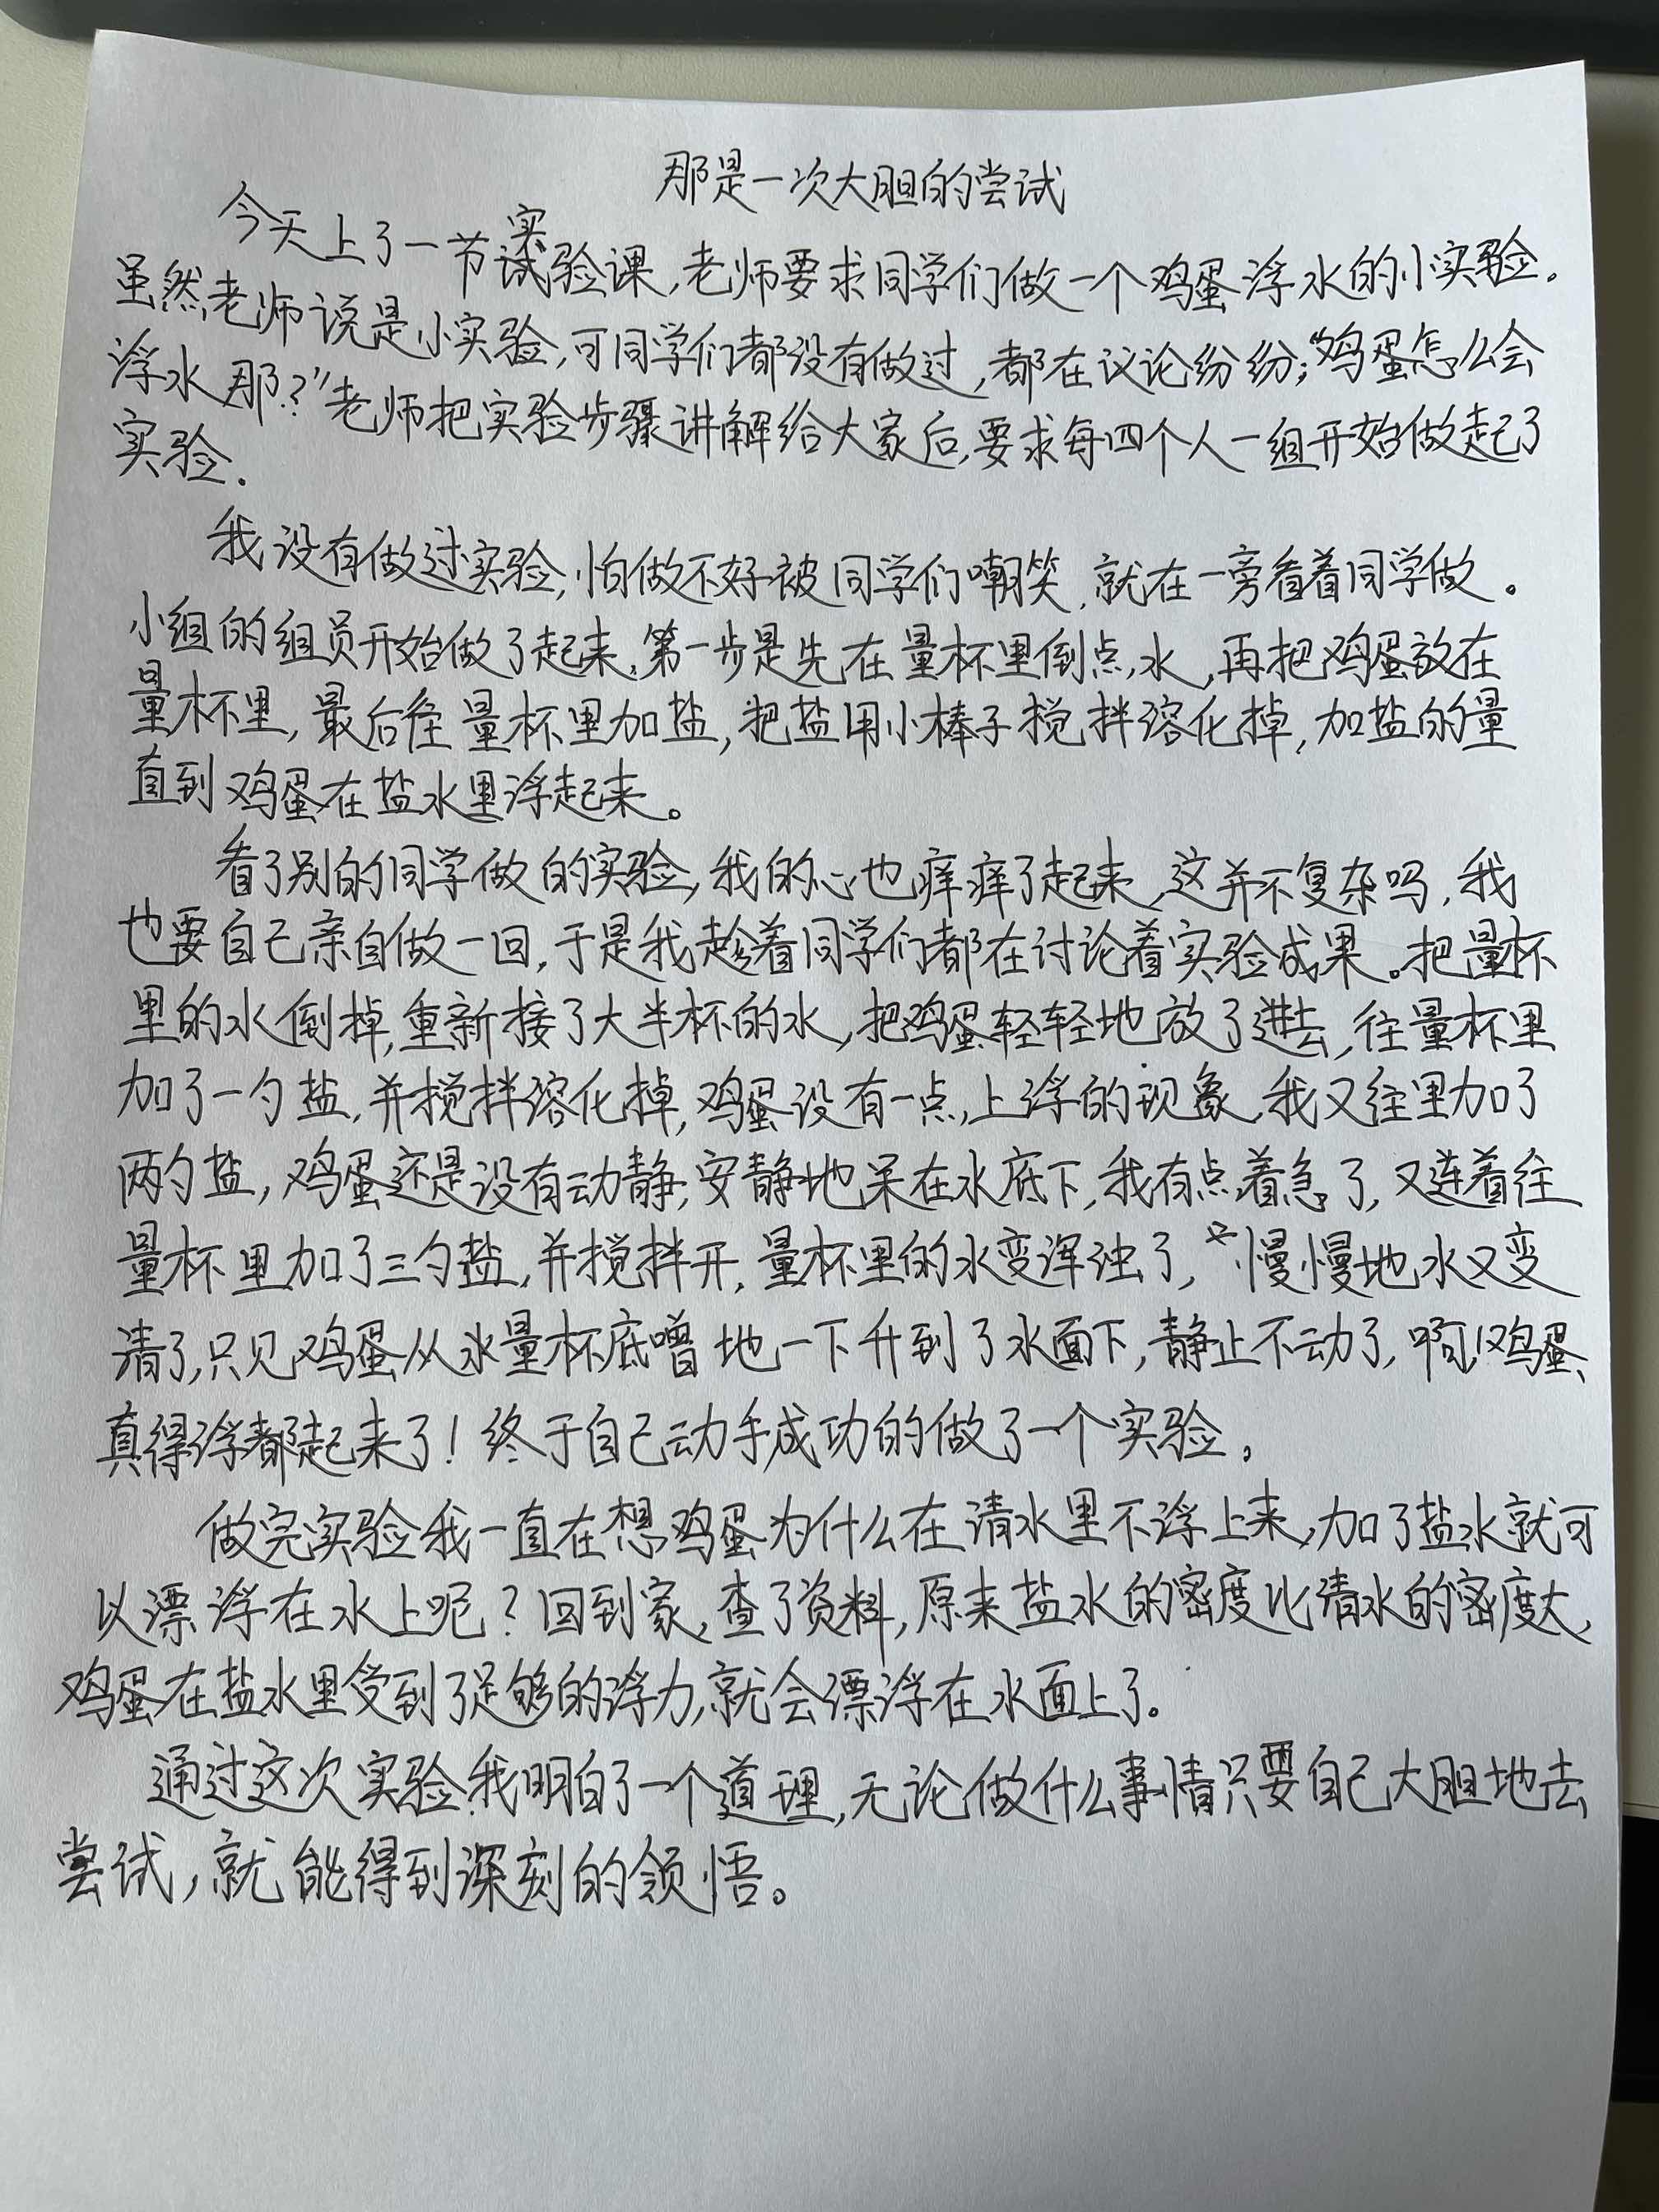 那是一次大胆的尝试
今天上了一节实验课,老师要求同学们做一个鸡蛋浮水的小实验。
虽然老师说是小实验,可同学们都没有做过,都在议论纷纷;“鸡蛋怎么会
浮水那?”老师把实验步骤讲解给大家后,要求每四个人一组开始做起了
实验.
我没有做过实验,怕做不好被同学们嘲笑,就在一旁看着同学做。
小组的组员开始做了起来,第一步是先在量杯里倒点水,再把鸡蛋放在
量杯里,最后往量杯里加盐,把盐用小棒子搅拌溶化掉,加盐的量
直到鸡蛋在盐水里浮起来。
看了别的同学做的实验,我的心也痒痒了起来,这并不复杂吗,我
也要自己亲自做一回,于是我趁着同学们都在讨论着实验成果。把量杯
里的水倒掉,重新接了大半杯的水,把鸡蛋轻轻地放了进去,往量杯里
加了一勺盐,并搅拌溶化掉,鸡蛋没有一点上浮的现象,我又往里加了
两勺盐,鸡蛋还是没有动静,安静地呆在水底下,我有点着急了,又连着往
量杯里加了三勺盐,并搅拌开,量杯里的水变浑浊了,慢慢地水又变
清了,只见鸡蛋从水量杯底噌地一下升到了水面下,静止不动了,啊!鸡蛋
真得浮都起来了!终于自己动手成功的做了一个实验。
做完实验我一直在想鸡蛋为什么在清水里不浮上来,加了盐水就可
以漂浮在水上呢?回到家,查了资料,原来盐水的密度比清水的密度大,
鸡蛋在盐水里受到了足够的浮力,就会漂浮在水面上了。
通过这次实验,我明白了一个道理,无论做什么事情只要自己大胆地去
尝试,就能得到深刻的领悟。